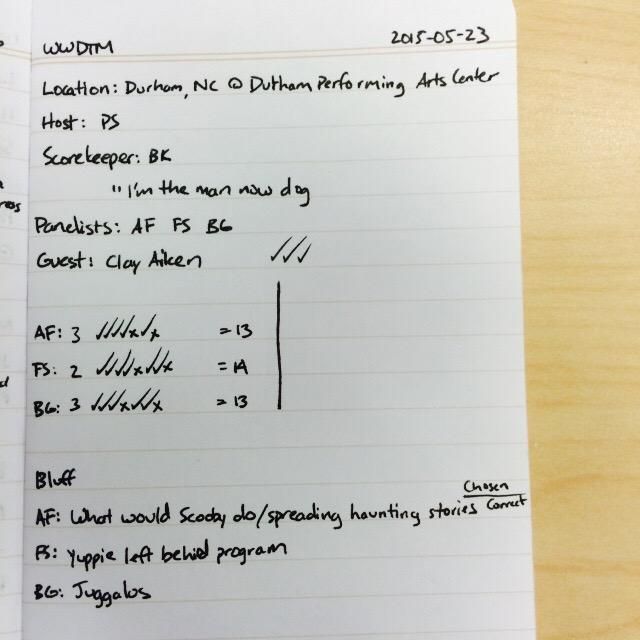 WWDTM 2015-05-23
Location: Durham, NC @ Durham Performing Arts Center
Host: PS
Scorekeeper: BK
"I'm the man now dog
Panelists: AF FS BG
Guest: Clay Aiken ✓✓✓
AF: 3 ✓✓✓✓x✓x = 13
FS: 2 ✓✓✓✓x✓✓x = 14
BG: 3 ✓✓✓x✓✓x = 13
Bluff
Chosen
AF: What would Scooby do/spreading haunting stories Correct
FS: Yuppie left behind program
BG: Juggalos